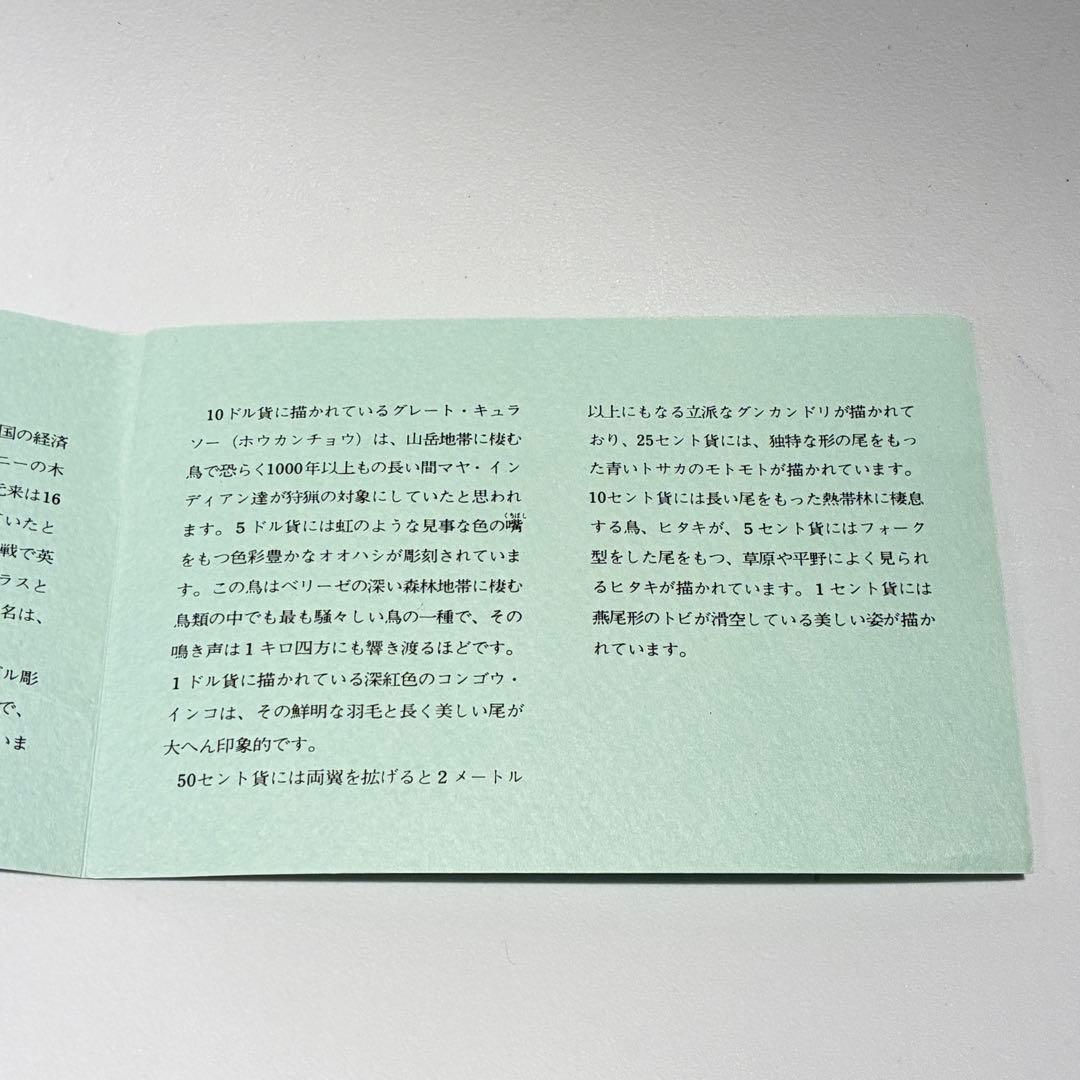 国の経済
ニーの木
元来は16
ていたと
戦で英
ラスと
名は、
ル彫
で、
いま
10ドル貨に描かれているグレート・キュラ
ソー（ホウカンチョウ）は、山岳地帯に棲む
鳥で恐らく1000年以上もの長い間マヤ・イン
ディアン達が狩猟の対象にしていたと思われ
ます。5ドル貨には虹のような見事な色の嘴
くちばし
をもつ色彩豊かなオオハシが彫刻されていま
す。この鳥はベリーゼの深い森林地帯に棲む
鳥類の中でも最も騒々しい鳥の一種で、その
鳴き声は1キロ四方にも響き渡るほどです。
1ドル貨に描かれている深紅色のコンゴウ・
インコは、その鮮明な羽毛と長く美しい尾が
大へん印象的です。
50セント貨には両翼を拡げると2メートル
以上にもなる立派なグンカンドリが描かれて
おり、25セント貨には、独特な形の尾をもっ
た青いトサカのモトモトが描かれています。
10セント貨には長い尾をもった熱帯林に棲息
する鳥、ヒタキが、5セント貨にはフォーク
型をした尾をもつ、草原や平野によく見られ
るヒタキが描かれています。1セント貨には
燕尾形のトビが滑空している美しい姿が描か
れています。